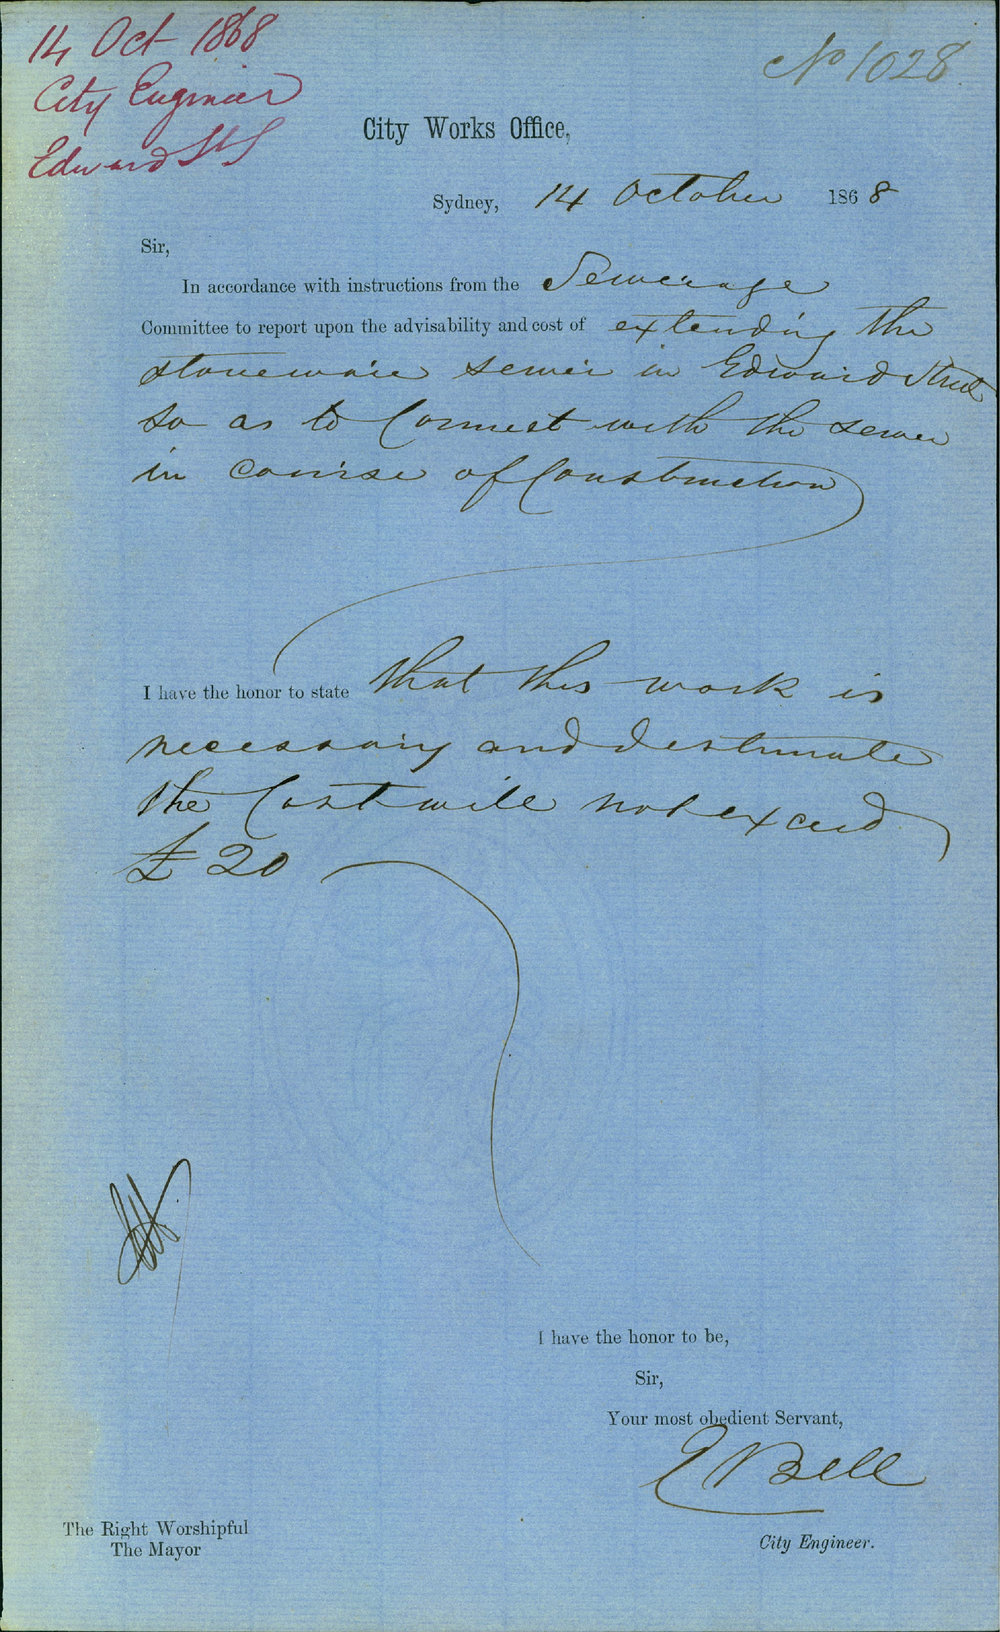 14 Oct 1868
City Engineer
Edward St S
No 1028
City Works Office,
Sydney, 14 October 1868
Sir,
In accordance with instructions from the Sewerage
Committee to report upon the advisability and cost of extending the
stoneware sewer in Edward Street
so as to Connect with the sewer
in course of Construction
I have the honor to state that this work is
necessary and I estimate
the Cost will not exceed
£20
I have the honor to be,
Sir,
Your most obedient Servant,
E Bell
City Engineer.
The Right Worshipful
The Mayor